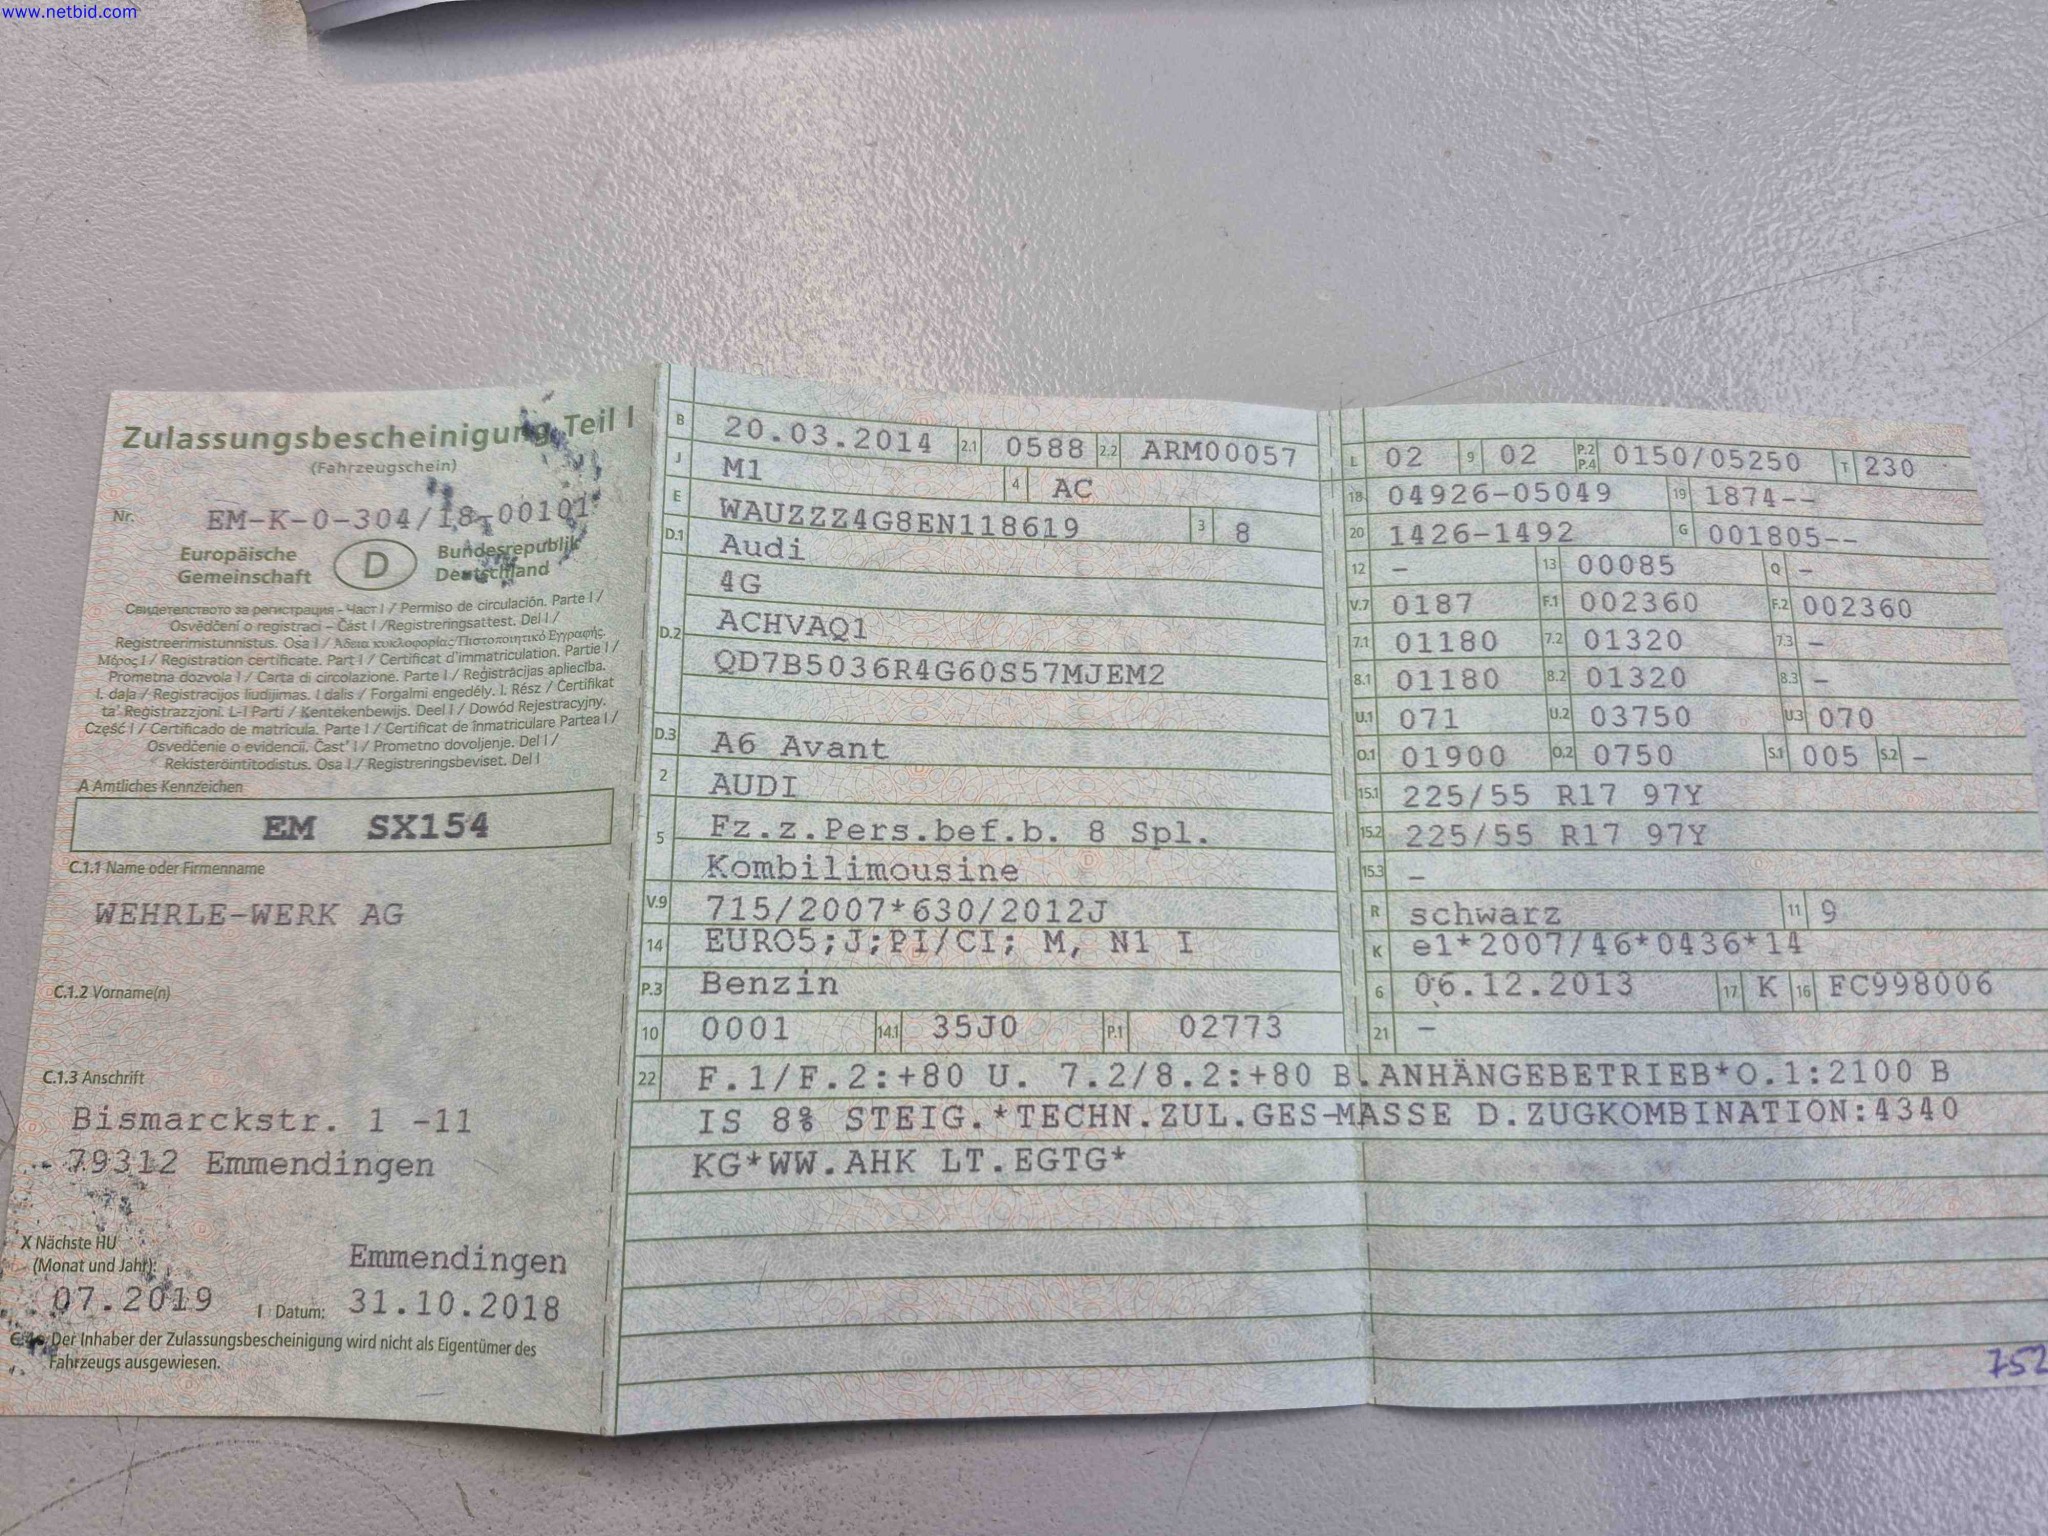 www.netbid.com
Zulassungsbescheinigung Teil I
(Fahrzeugschein)
Nr. EM-K-0-304/18-00101
Europäische Gemeinschaft D Bundesrepublik Deutschland
Свидетелството за регистрация – Част I / Permiso de circulación. Parte I /
Osvědčení o registraci – Část I /Registreringsattest. Del I /
Registreerimistunnistus. Osa I / Άδεια κυκλοφορίας/Πιστοποιητικό Εγγραφής.
Μέρος I / Registration certificate. Part I / Certificat d'immatriculation. Partie I /
Prometna dozvola I / Carta di circolazione. Parte I / Reģistrācijas apliecība.
I. daļa / Registracijos liudijimas. I dalis / Forgalmi engedély. I. Rész / Ċertifikat
ta' Reġistrazzjoni. L-I Parti / Kentekenbewijs. Deel I / Dowód Rejestracyjny.
Część I / Certificado de matrícula. Parte I / Certificat de înmatriculare Partea I /
Osvedčenie o evidencii. Časť I / Prometno dovoljenje. Del I /
Rekisteröintitodistus. Osa I / Registreringsbeviset. Del I
A Amtliches Kennzeichen
EM SX154
C.1.1 Name oder Firmenname
WEHRLE-WERK AG
C.1.2 Vorname(n)
C.1.3 Anschrift
Bismarckstr. 1 -11
79312 Emmendingen
X Nächste HU
(Monat und Jahr):
Emmendingen
07.2019 I Datum: 31.10.2018
C.4c Der Inhaber der Zulassungsbescheinigung wird nicht als Eigentümer des
Fahrzeugs ausgewiesen.
B 20.03.2014 2.1 0588 2.2 ARM00057
J M1 4 AC
E WAUZZZ4G8EN118619 3 8
D.1 Audi
4G
D.2 ACHVAQ1
QD7B5036R4G60S57MJEM2
D.3 A6 Avant
2 AUDI
5 Fz.z.Pers.bef.b. 8 Spl.
Kombilimousine
V.9 715/2007*630/2012J
14 EURO5;J;PI/CI; M, N1 I
P.3 Benzin
10 0001 14.1 35J0 P.1 02773
L 02 9 02 P.2 P.4 0150/05250 T 230
18 04926-05049 19 1874--
20 1426-1492 G 001805--
12 – 13 00085 Q –
V.7 0187 F.1 002360 F.2 002360
7.1 01180 7.2 01320 7.3 –
8.1 01180 8.2 01320 8.3 –
U.1 071 U.2 03750 U.3 070
O.1 01900 O.2 0750 S.1 005 S.2 –
15.1 225/55 R17 97Y
15.2 225/55 R17 97Y
15.3 –
R schwarz 11 9
K e1*2007/46*0436*14
6 06.12.2013 17 K 16 FC998006
21 –
22 F.1/F.2:+80 U. 7.2/8.2:+80 B.ANHÄNGEBETRIEB*O.1:2100 B
IS 8% STEIG.*TECHN.ZUL.GES-MASSE D.ZUGKOMBINATION:4340
KG*WW.AHK LT.EGTG*
752